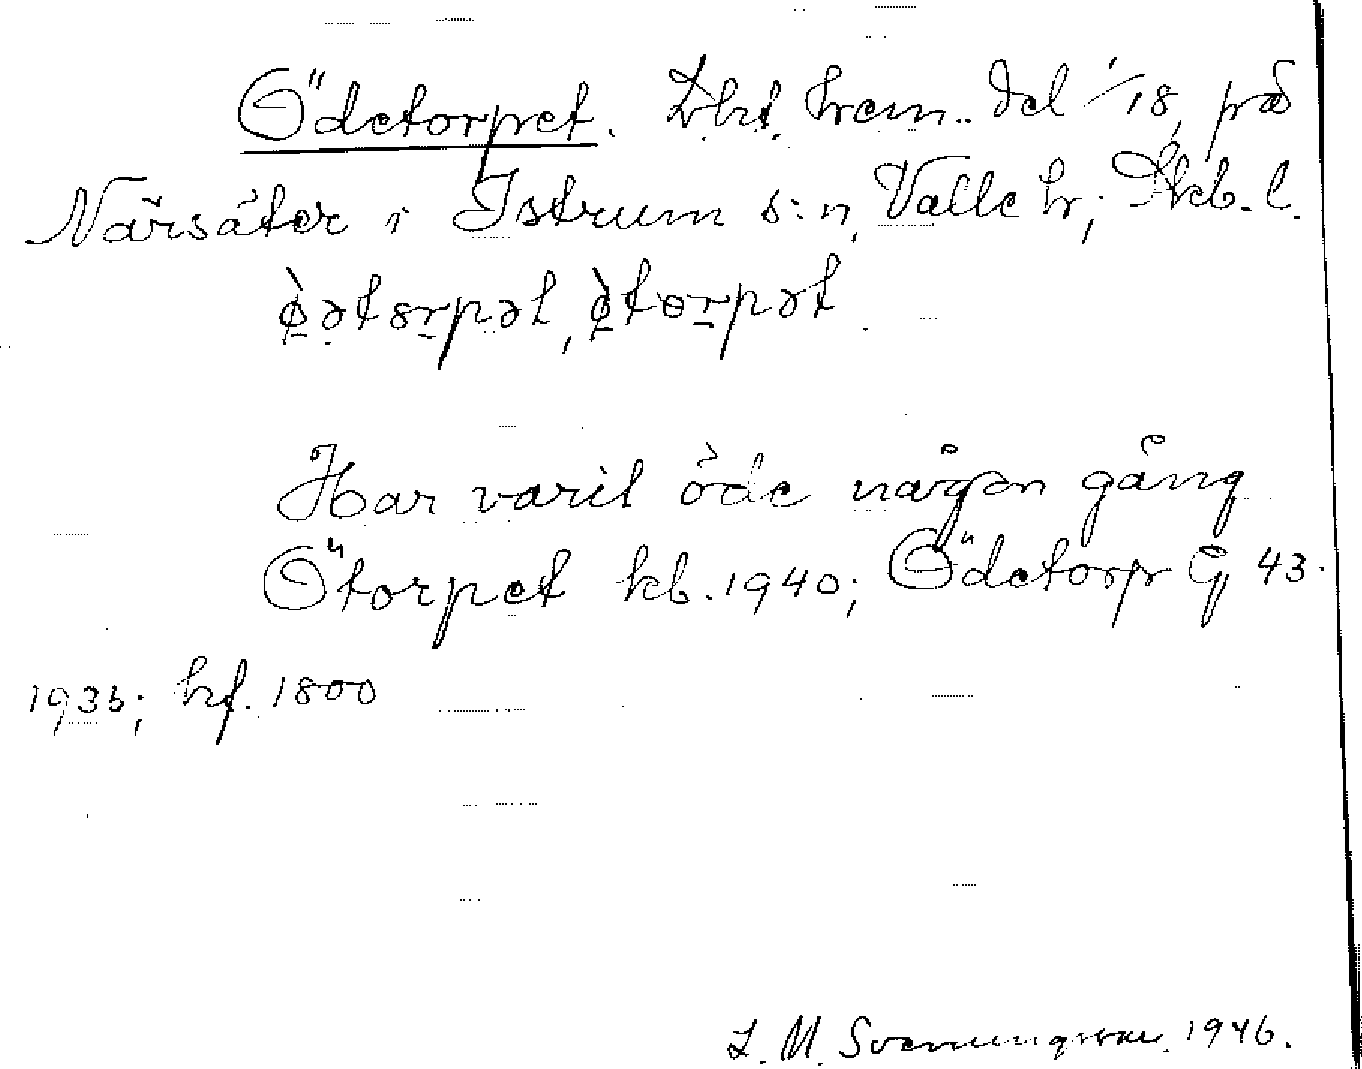 Ödetorpet. Lht. hem. del 1/18, på
Närsäter i Istrum s:n, Valle hr; Skb. l.
ø̀ətɵrpət, ø̀tɵrpət
Har varit öde någon gång
Ötorpet kb. 1940; Ödetorp G 43.
1935; hf. 1800
L. M. Svenungsson. 1946.